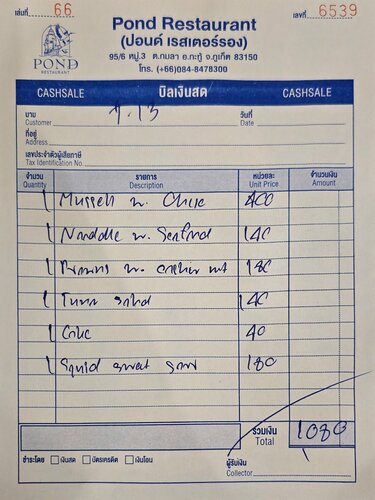 เล่มที่ 66
เลขที่ 6539
POND
RESTAURANT
Pond Restaurant
(ปอนด์ เรสเตอร์รอง)
95/6 หมู่.3 ต.กมลา อ.กะทู้ จ.ภูเก็ต 83150
โทร. (+66)084-8478300
CASHSALE บิลเงินสด CASHSALE
นาม วันที่
Customer 13 Date
ที่อยู่
Address
เลขประจำตัวผู้เสียภาษี
Tax Identification No.
จำนวน รายการ หน่วยละ จำนวนเงิน
Quantity Description Unit Price Amount
1 Mussels w. 400
1 Noodle w. Seafood 140
1 w. 180
1 Tuna salad 140
1 40
1 Squid sweet 180
รวมเงิน
Total 1080
ชำระโดย เงินสด บัตรเครดิต เงินโอน
ผู้รับเงิน
Collector